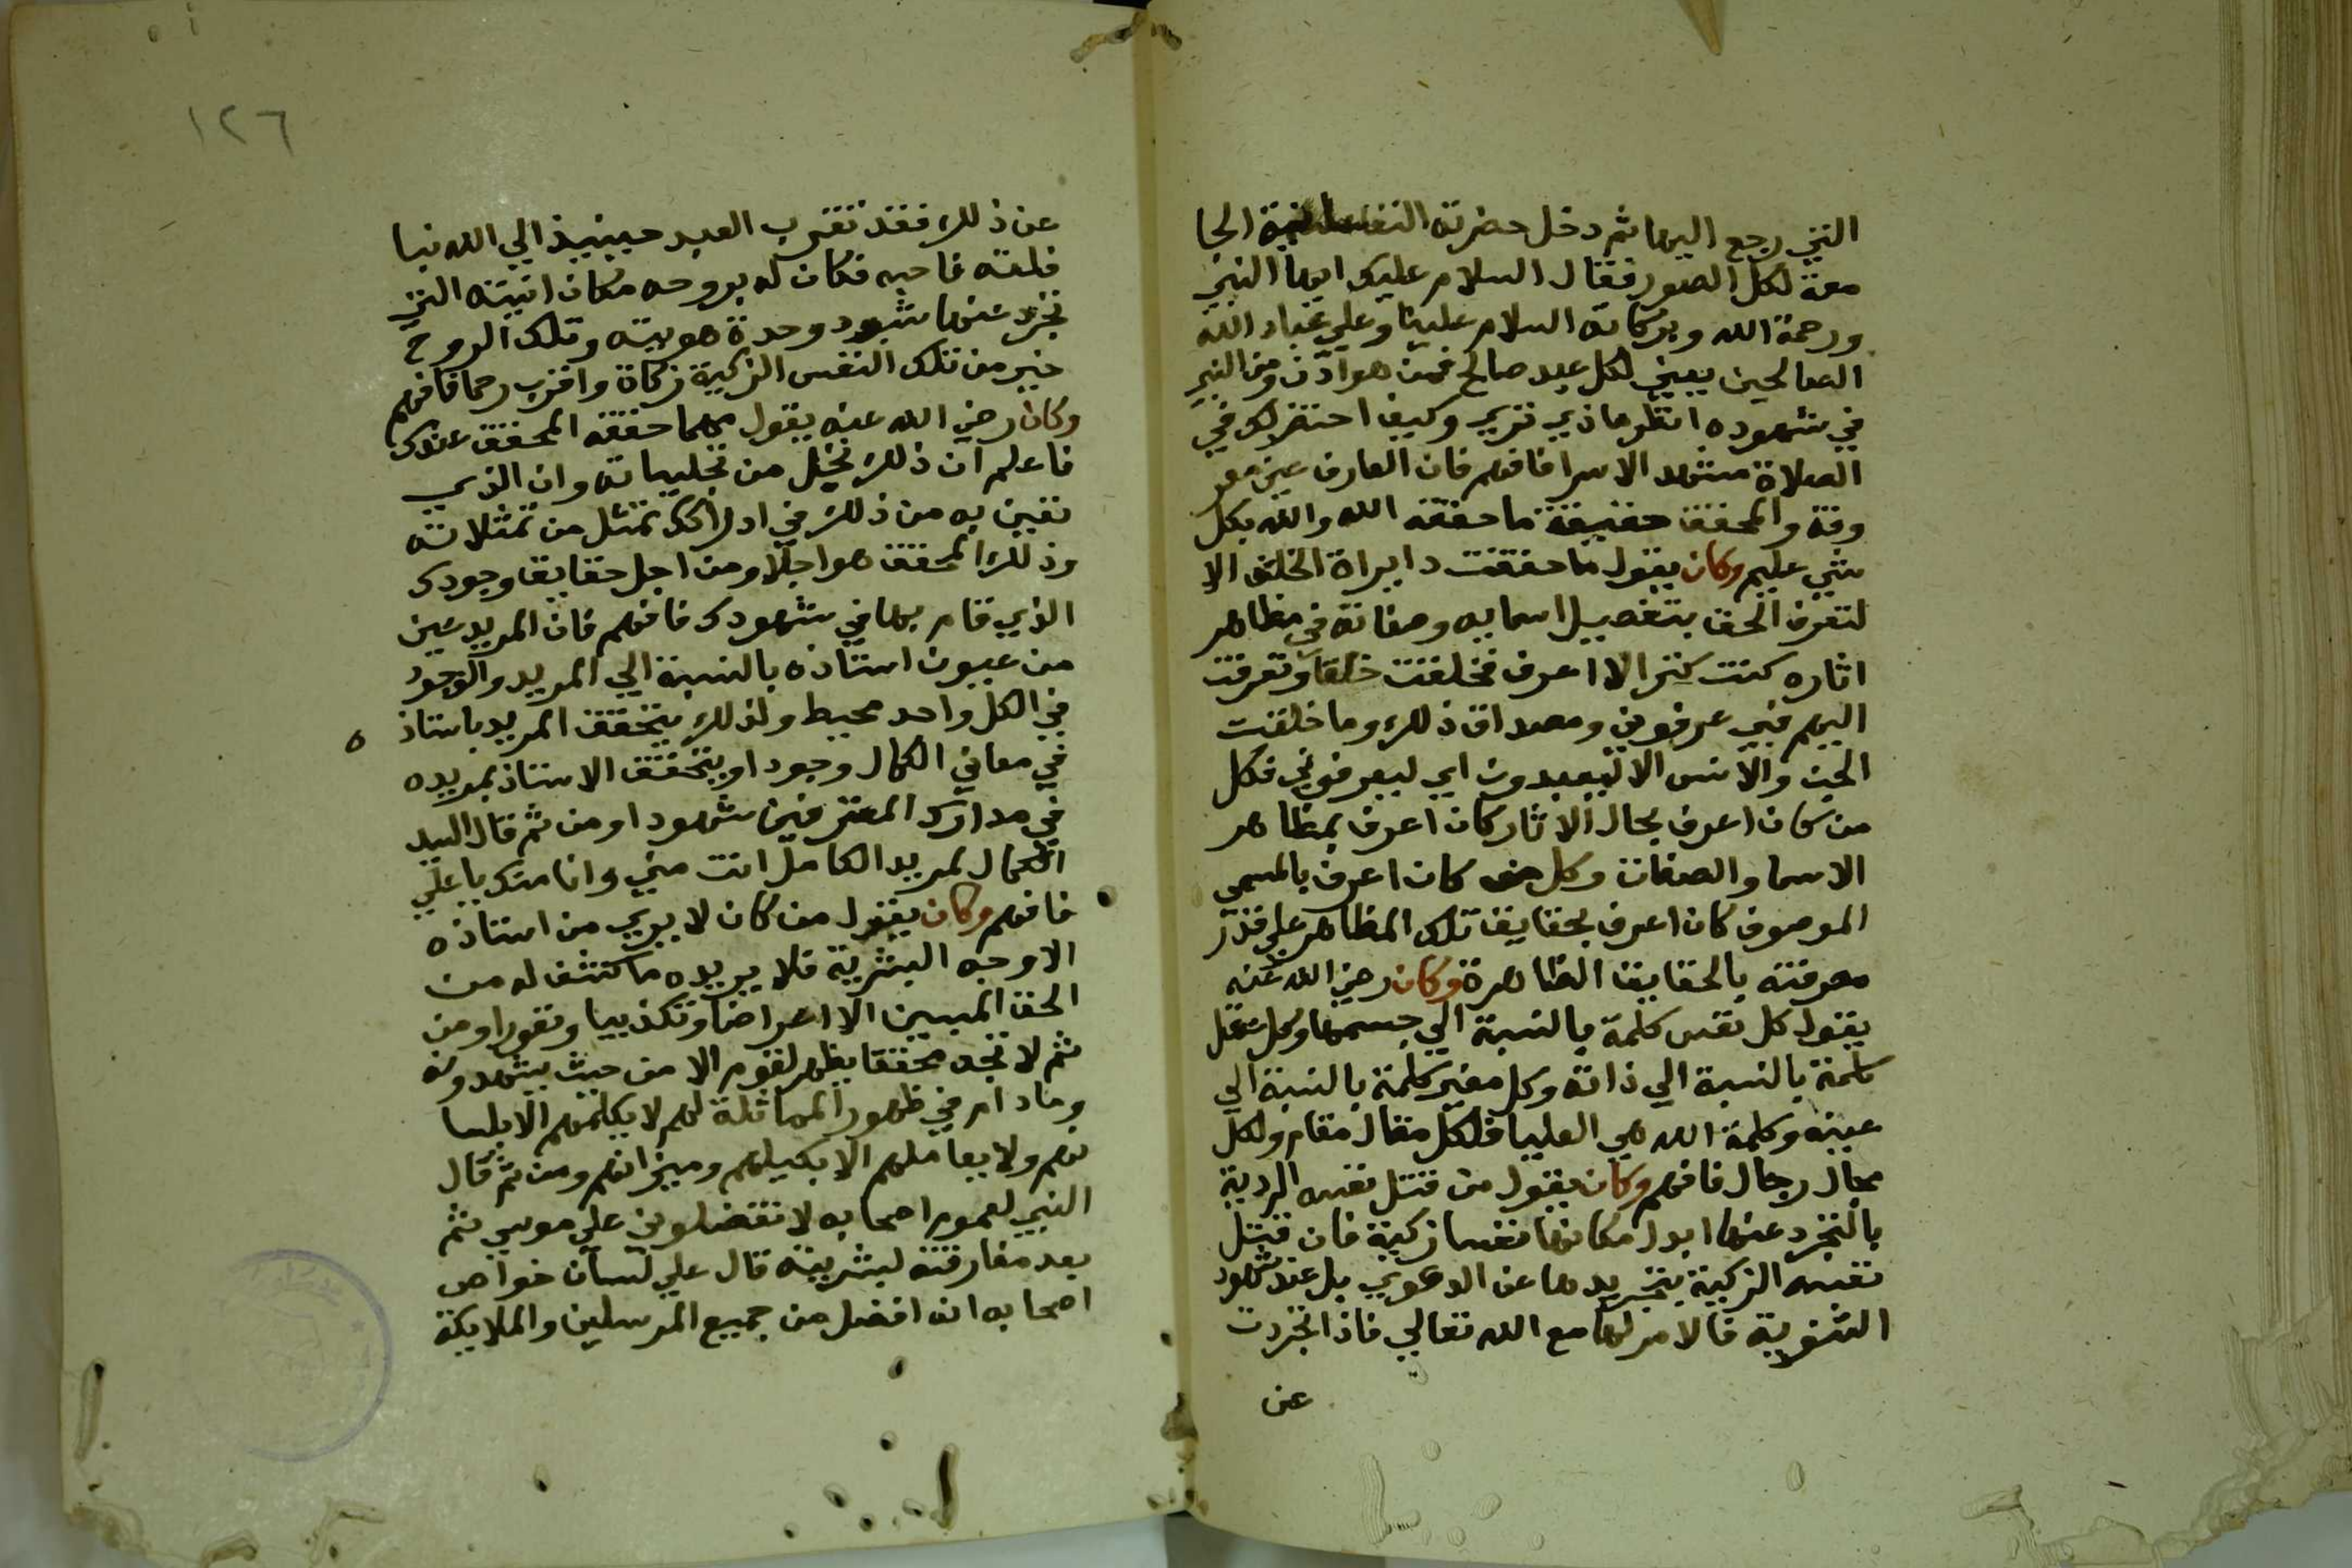 التي رجع اليها ثم دخل حضرته الجا
معة لكل الصور فقال السلام عليك ايها النبي
ورحمة الله وبركاته السلام علينا وعلي عباد الله
الصالحين يعني لكل عبد صالح فمن هو اذن ومن النبي
في شهوده انظر ماذي تري وكيف احتضر لك في
الصلاة مشهد الاسرا فافهم فان العارف عين معر
وفة والمحقق حقيقة ما حققه الله والله بكل
شي عليم وكان يقول ما حققت دايراة الخلق الا
لتعرف الحق بتفصيل اسمايه وصفاته في مظاهر
اثاره كنت كنزا لا اعرف فخلقت خلقا وتعرفت
اليهم فبي عرفوني ومصداق ذلك وما خلقت
الجن والانس الا ليعبدون اي ليعرفوني فكل
من كان اعرف بحال الاثار كان اعرف بمظاهر
الاسما والصفات وكل من كان اعرف بالمسمي
الموصوف كان اعرف بحقايق تلك المظاهر علي قدر
معرفته بالحقايق الظاهرة وكان رضي الله عنه
يقول كل نفس كلمة بالنسبة الي جسمها وكل عقل
كلمة بالنسبة الي ذاته وكل معني كلمة بالنسبة الي
عينه وكلمة الله هي العليا فلكل مقال مقام ولكل
مجال رجال فافهم وكان يقول من قتل نفسه الردية
بالتجرد عنها ابدل مكانها نفسا زكية فان قتل
نفسه الزكية بتجريدها عن الدعوي بل عند شهود
الثنوية فالامر لها مع الله تعالي فاذا تجردت
عن
١٢٦
عن ذلك فقد تقرب العبد حينيذ الي الله نبا
فلقه فاحبه فكان له بروحه مكان انيته التي
تجرد عنها شهود وحدة هويته وتلك الروح
خير من تلك النفس الزكية زكاة واقرب رحما فافهم
وكان رضي الله عنه يقول مهما حققه المحقق عندك
فاعلم ان ذلك تجل من تجلياته وان الذي
تعين به من ذلك في ادراكك تمثل من تمثلاته
وذلك المحقق هو اجلا ومن اجل حقايق وجودك
الذي قام بها في شهودك فافهم فان المريد عين
من عيون استاذه بالنسبة الي المريد والوجود
في الكل واحد محيط ولذلك يتحقق المريد باستاذ ه
في معاني الكمال وجودا ويتحقق الاستاذ بمريده
في مدارك المعترفين شهودا ومن ثم قال السيد
الكمال لمريد الكامل انت مني وانا منك يا علي
فافهم وكان يقول من كان لا يري من استاذه
الا وجه البشرية فلا يريده ما كشف له من
الحق المبين الا اعراضا وتكذيبا ونفورا ومن
ثم لا تجد محققا يظهر لقوم الا من حيث يشهدونه
وما دام في ظهور المماثلة لهم لا يكلمهم الا بلسا
نهم ولا يعاملهم الا بكيلهم وميزانهم ومن ثم قال
النبي لعموم اصحابه لا تفضلوني علي موسي ثم
بعد مفارقته لبشريته قال علي لسان خواص
اصحابه انه افضل من جميع المرسلين والملايكة